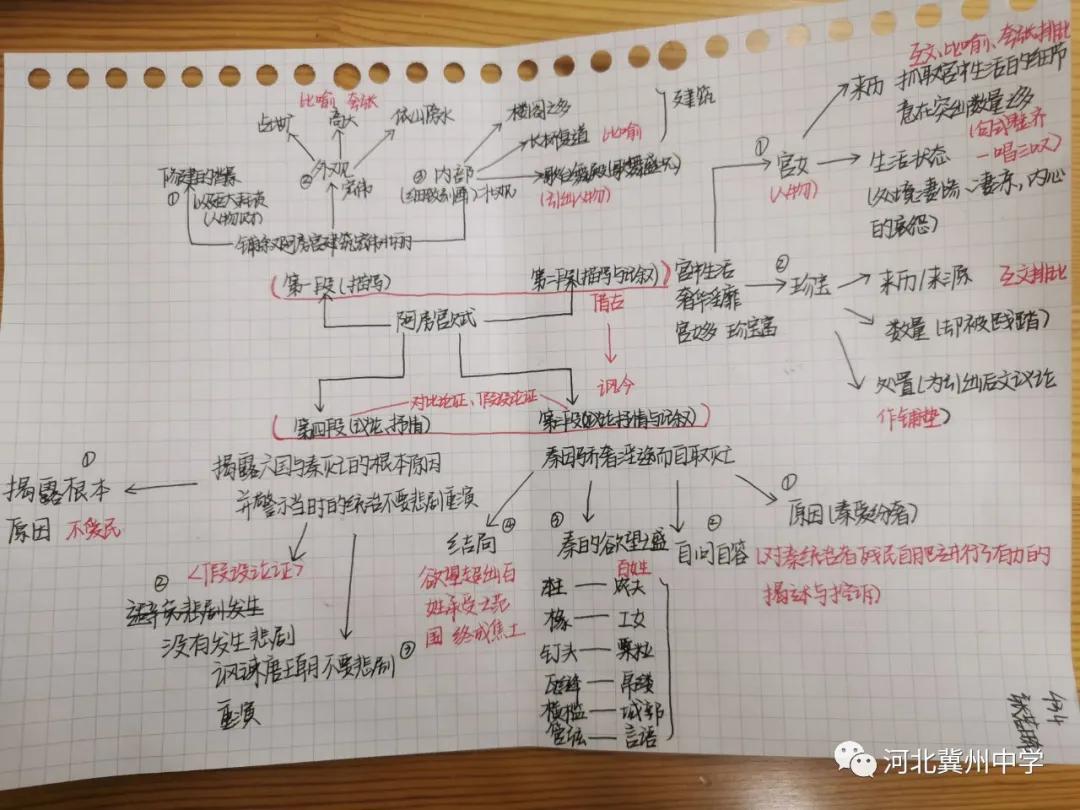 互文、比喻、夸张排比
来历
抓取宫中生活的细节
意在突出数量之多
(句式整齐
一唱三叹)
①
宫女
(人物)
生活状态
(处境凄惨、凄凉,内心
的哀怨)
②
珍宝
来历/来源
互文排比
数量(却被践踏)
处置(为引出后文议论
作铺垫)
宫中生活
奢华淫靡
宫女多 珍宝富
比喻 夸张
占地广
高大
依山傍水
楼阁之多
长桥复道
比喻
建筑
歌台舞殿(歌舞盛况)
(引出人物)
①
②
外观
宏伟
③
内部
(细致刻画)
壮观
铺叙阿房宫建筑宏伟壮丽
(第一段(描写)
第二段(描写与记叙))
借古
阿房宫赋
讽今
对比论证、假设论证
(第四段(议论、抒情)
第三段(议论抒情与记叙))
揭露六国与秦灭亡的根本原因
并警示当时的统治不要悲剧重演
秦因骄奢淫逸而自取灭亡
①
揭露根本
原因
不爱民
②
<假设论证>
避免悲剧发生
没有发生悲剧
③
讽谏唐王朝不要悲剧
重演
④
结局
欲望超出百
姓承受之范
国 终成焦土
③
秦的欲望之盛
百姓
柱——农夫
椽——工女
钉头——粟粒
瓦缝——帛缕
横槛——城郭
管弦——言语
②
自问自答
①
原因(秦爱纷奢)
(对秦统治者残民自肥进行了有力的
揭示与控诉)
河北冀州中学